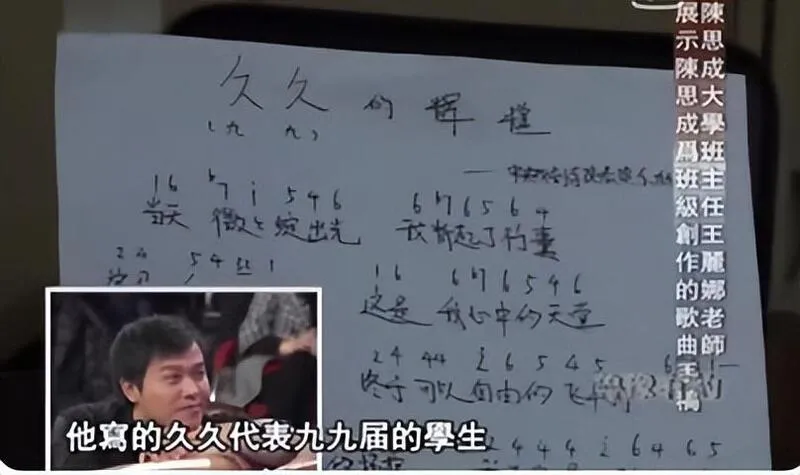 陳思成大學班主任王麗娜老師
展示陳思成爲班級創作的歌曲手稿
久久的辉煌
（九 九）
1 6 b7 i 5 4 6 6 b7 6 5 6 4
当天 微微绽出光 我背起了行囊
5 4
1 6 6 b7 6 5 4 6
这是 我心中的天堂
2 4 4 4 2 6 5 4 5
终于 可以自由的飞
2 4 4 4 i 6 4 6 5
他寫的久久代表九九届的學生